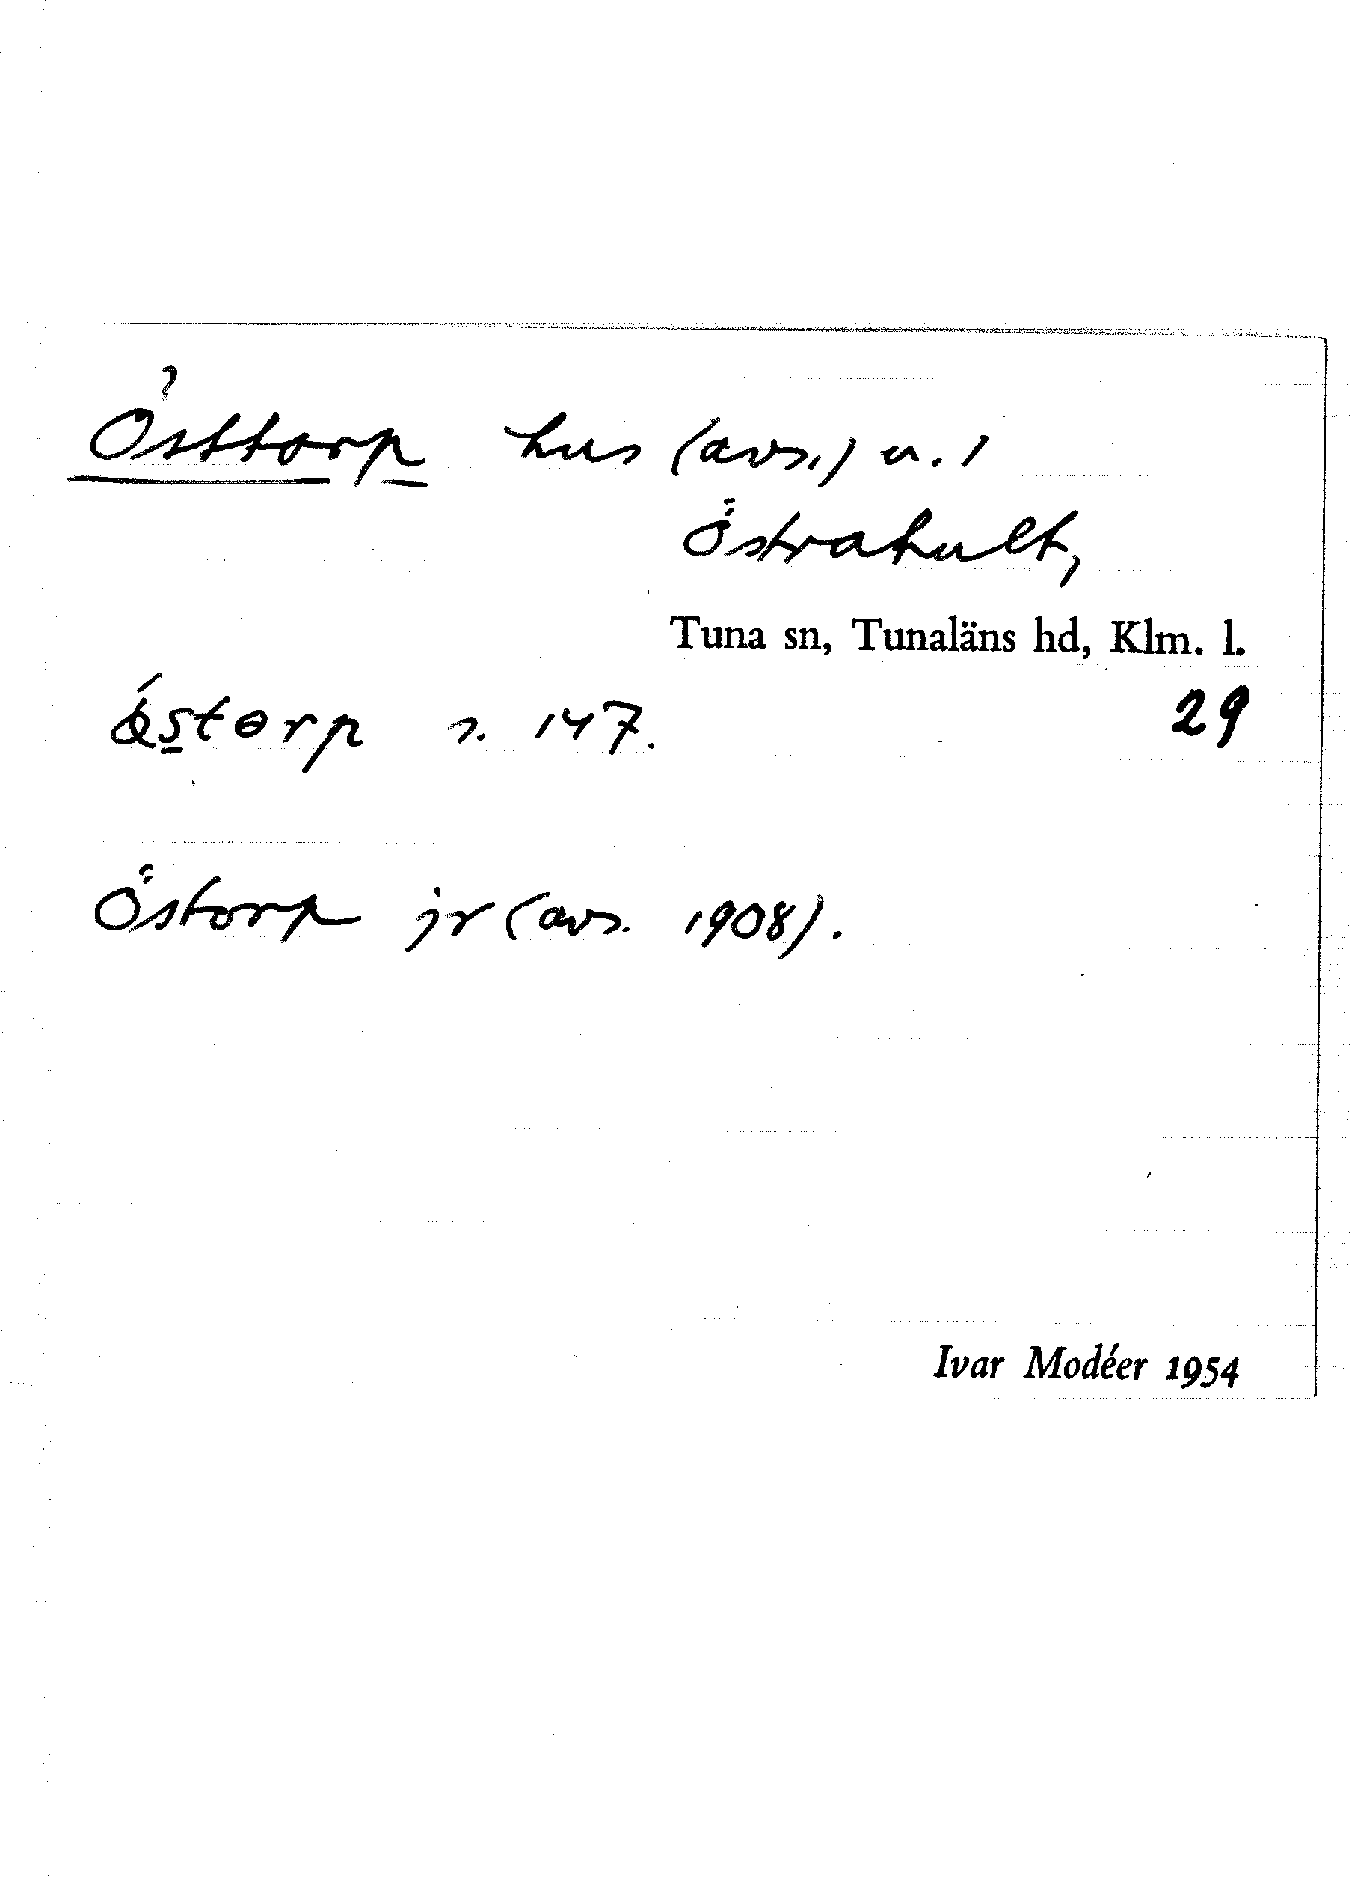 Östtorp hus (avs.) u. 1
Östrahult,
Tuna sn, Tunaläns hd, Klm. l.
29
s. 147.
Östorp jr (avs. 1908).
Ivar Modéer 1954